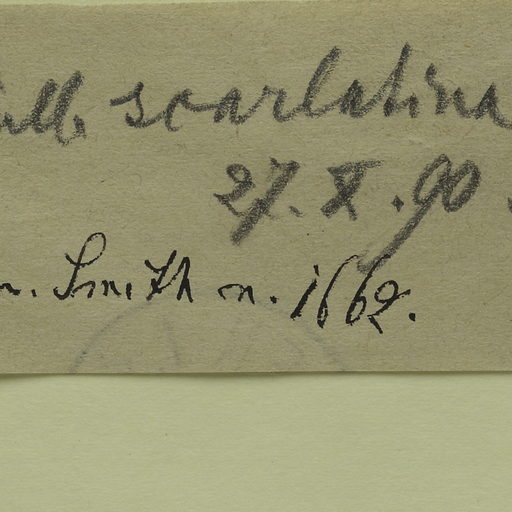 scarlatina
27. X. 90.
n. Smith n. 1662.